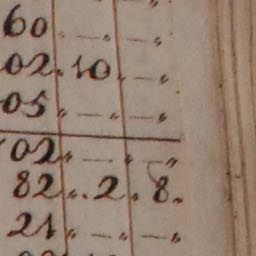 60. —. —.
02. 10. —.
05. —. —.
02. —. —.
82.. 2. 8.
21. —. —.